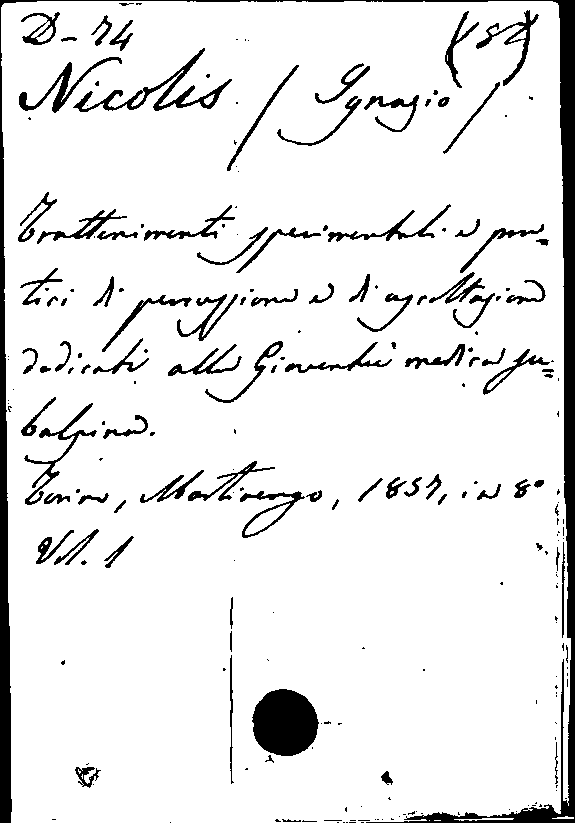 D-74 (52)
Nicolis / Ignazio /
Trattenimenti sperimentali e pra=
tici di percussione e di ascoltazione
dedicati alla Gioventù medica su=
balpina.
Torino, Martinengo, 1857, in 8°
Vol. 1